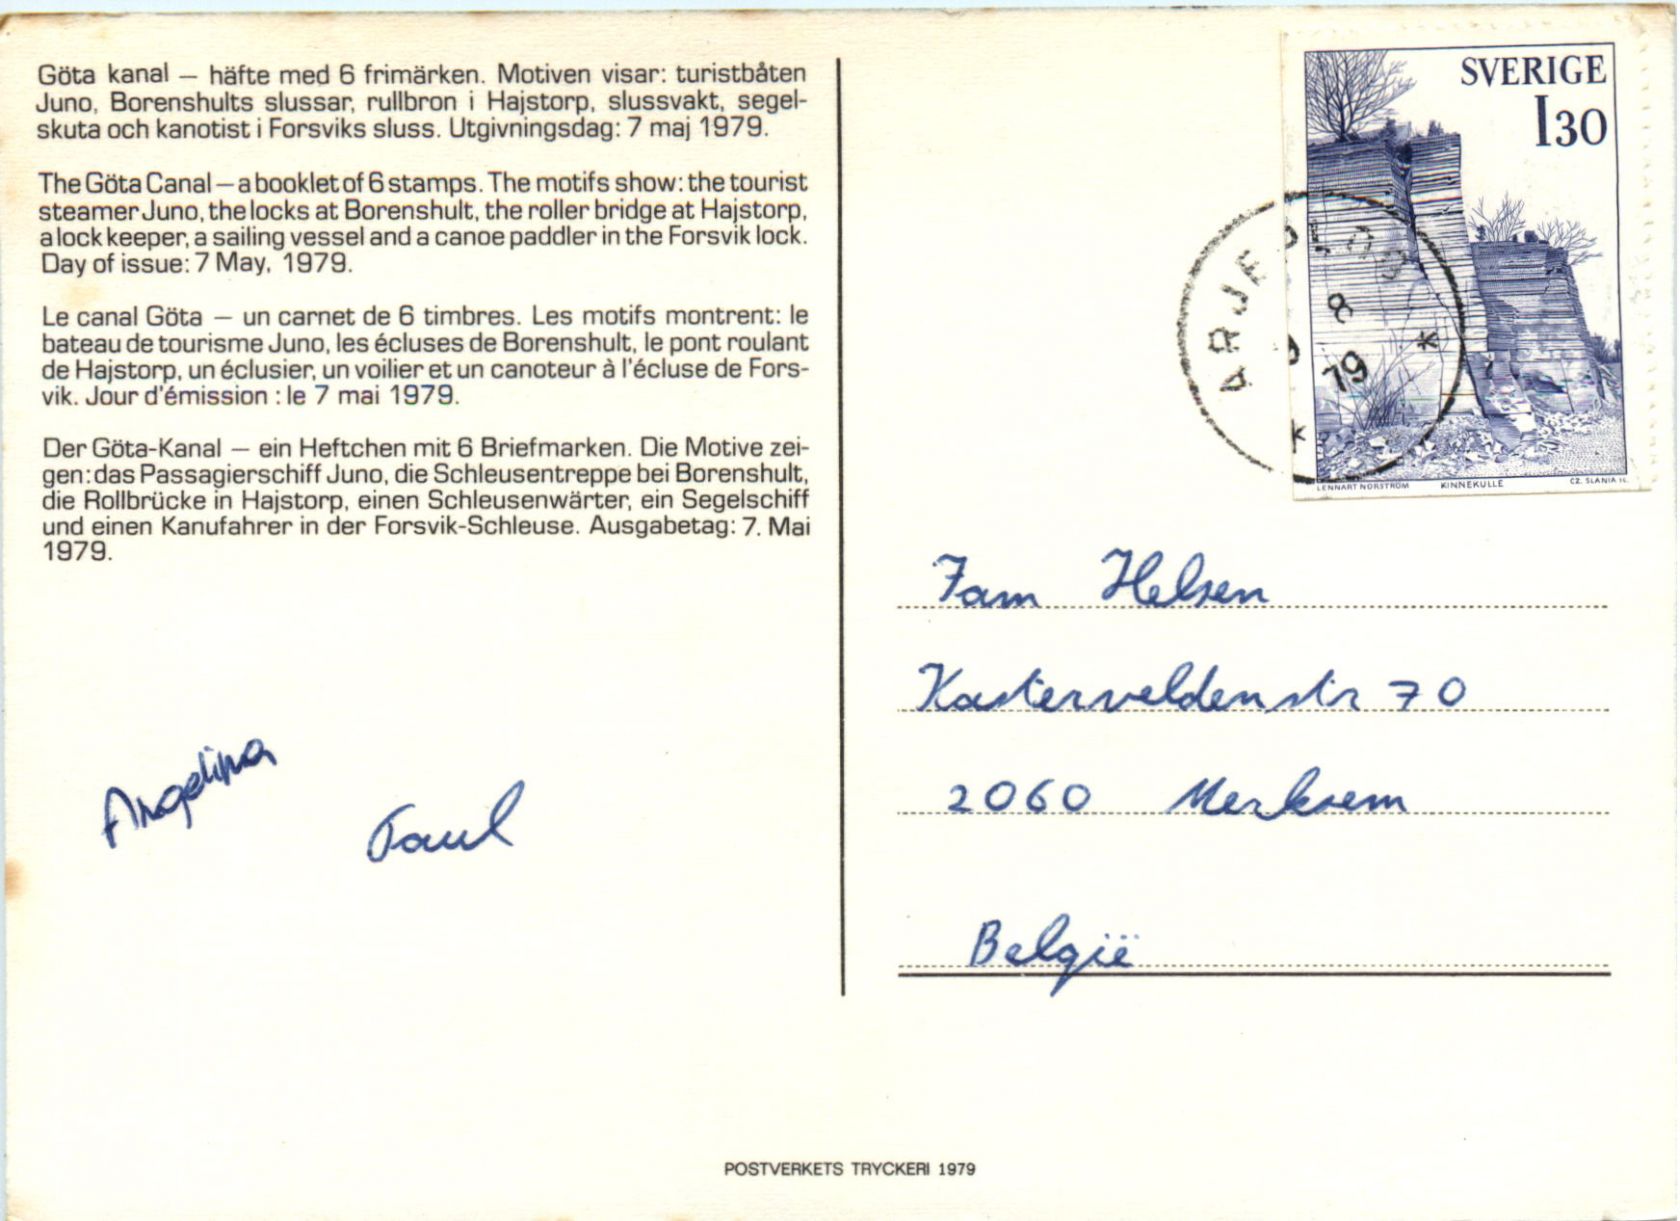 Göta kanal – häfte med 6 frimärken. Motiven visar: turistbåten
Juno, Borenshults slussar, rullbron i Hajstorp, slussvakt, segel-
skuta och kanotist i Forsviks sluss. Utgivningsdag: 7 maj 1979.
The Göta Canal – a booklet of 6 stamps. The motifs show: the tourist
steamer Juno, the locks at Borenshult, the roller bridge at Hajstorp,
a lock keeper, a sailing vessel and a canoe paddler in the Forsvik lock.
Day of issue: 7 May, 1979.
Le canal Göta – un carnet de 6 timbres. Les motifs montrent: le
bateau de tourisme Juno, les écluses de Borenshult, le pont roulant
de Hajstorp, un éclusier, un voilier et un canoteur à l'écluse de Fors-
vik. Jour d'émission : le 7 mai 1979.
Der Göta-Kanal – ein Heftchen mit 6 Briefmarken. Die Motive zei-
gen: das Passagierschiff Juno, die Schleusentreppe bei Borenshult,
die Rollbrücke in Hajstorp, einen Schleusenwärter, ein Segelschiff
und einen Kanufahrer in der Forsvik-Schleuse. Ausgabetag: 7. Mai
1979.
Angelina
Paul
SVERIGE
130
ARJEPLOG
8
79
LENNART NORSTRÖM KINNEKULLE CZ. SLANIA SC.
Fam Helsen
Kasterveldenstr 70
2060 Merksem
België
POSTVERKETS TRYCKERI 1979